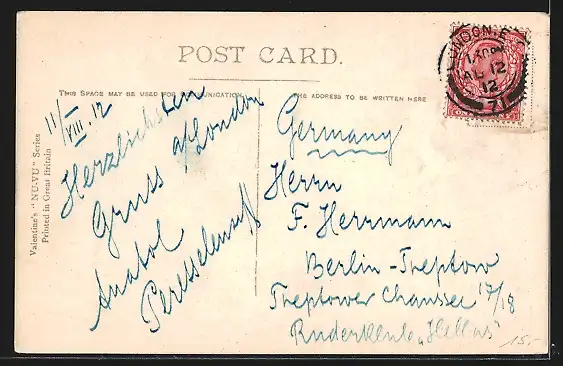 POST CARD.
THIS SPACE MAY BE USED FOR COMMUNICATION
THE ADDRESS TO BE WRITTEN HERE
Valentine's "NU-VU" Series
Printed in Great Britain
11/VIII.12
Herzlichsten
Gruss aus London
Anatol
Germany
Herrn
F. Herrmann
Berlin-Treptow
Treptower Chaussee 17/18
Ruderklub „Hellas"
15.-
LONDON. E
1.30PM
AU 12
12
71